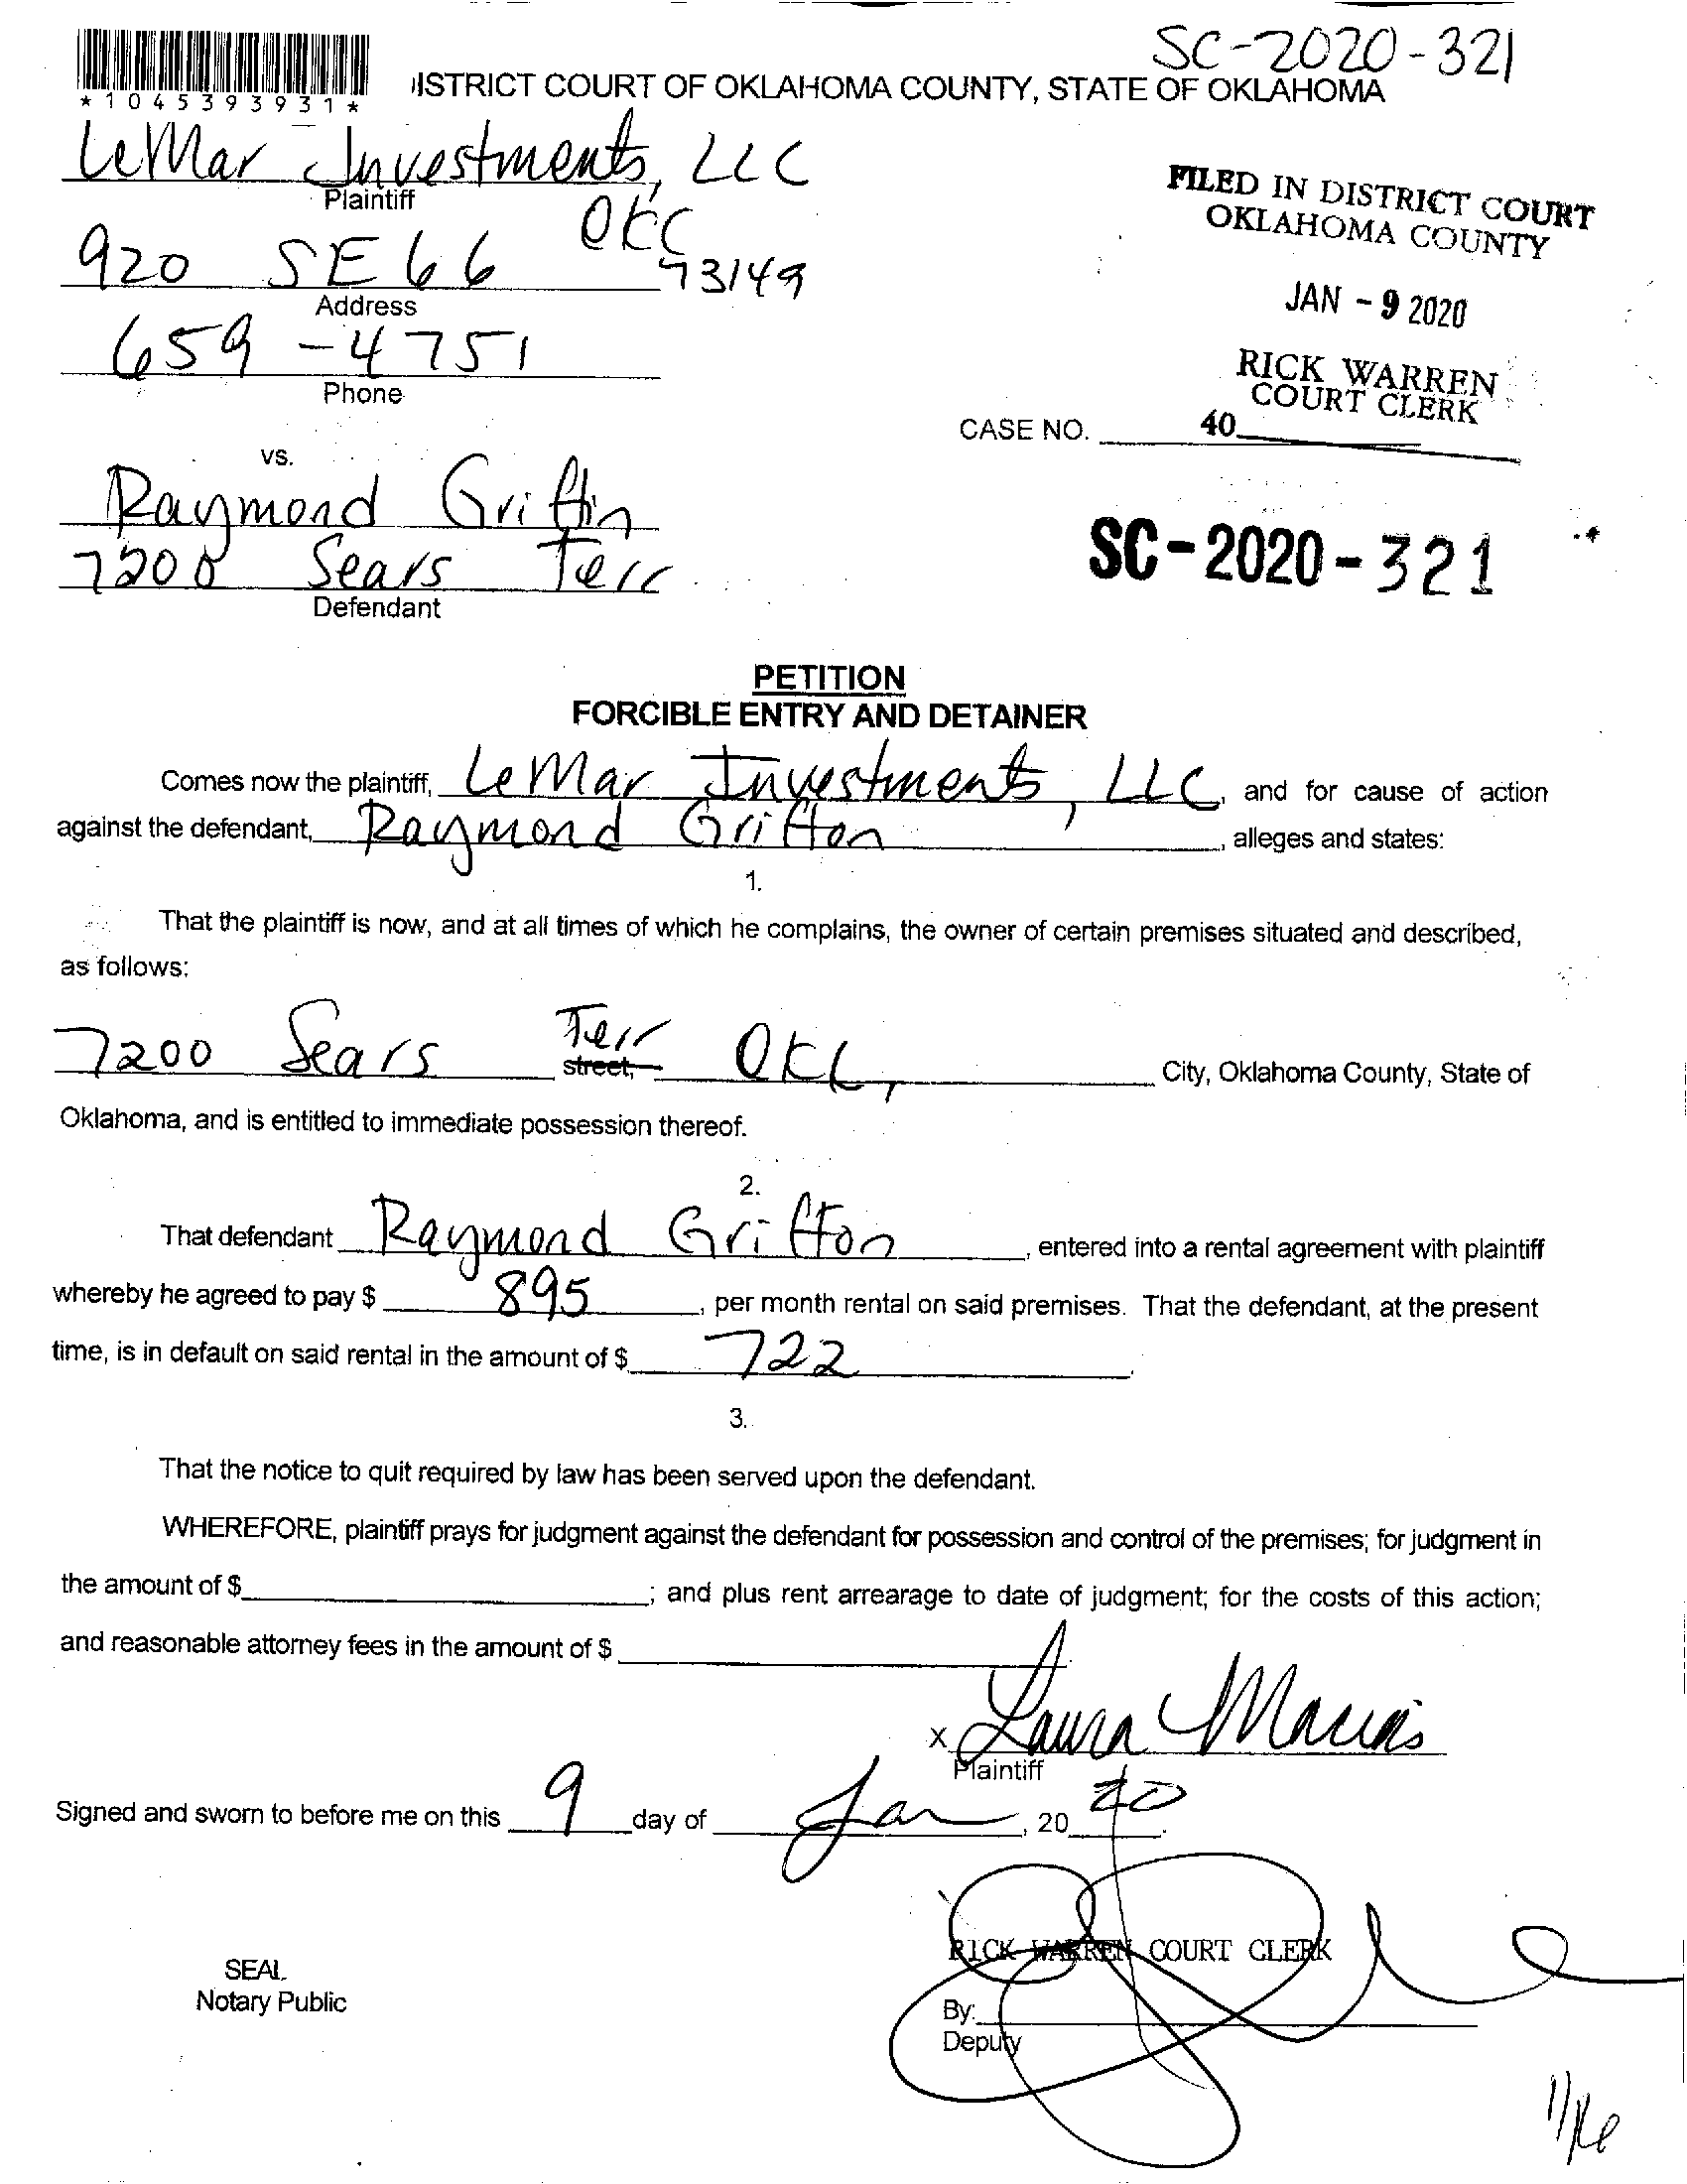 SC-2020-321
*1045393931*
ISTRICT COURT OF OKLAHOMA COUNTY, STATE OF OKLAHOMA
LeMar Investments, LLC
Plaintiff
920 SE 66 OKC 73149
Address
659-4751
Phone
FILED IN DISTRICT COURT
OKLAHOMA COUNTY
JAN - 9 2020
RICK WARREN
COURT CLERK
40
CASE NO.
vs.
Raymond Griffin
7200 Sears Terr
Defendant
SC-2020-321
PETITION
FORCIBLE ENTRY AND DETAINER
Comes now the plaintiff, LeMar Investments, LLC, and for cause of action
against the defendant, Raymond Griffon, alleges and states:
1.
That the plaintiff is now, and at all times of which he complains, the owner of certain premises situated and described,
as follows:
7200 Sears Terr street, OKC, City, Oklahoma County, State of
Oklahoma, and is entitled to immediate possession thereof.
2.
That defendant Raymond Griffon, entered into a rental agreement with plaintiff
whereby he agreed to pay $ 895, per month rental on said premises. That the defendant, at the present
time, is in default on said rental in the amount of $ 722.
3.
That the notice to quit required by law has been served upon the defendant.
WHEREFORE, plaintiff prays for judgment against the defendant for possession and control of the premises; for judgment in
the amount of $; and plus rent arrearage to date of judgment; for the costs of this action;
and reasonable attorney fees in the amount of $
x Laura Macias
Plaintiff
Signed and sworn to before me on this 9 day of Jan, 20 20.
RICK WARREN COURT CLERK
SEAL
Notary Public
By:
Deputy
1/16